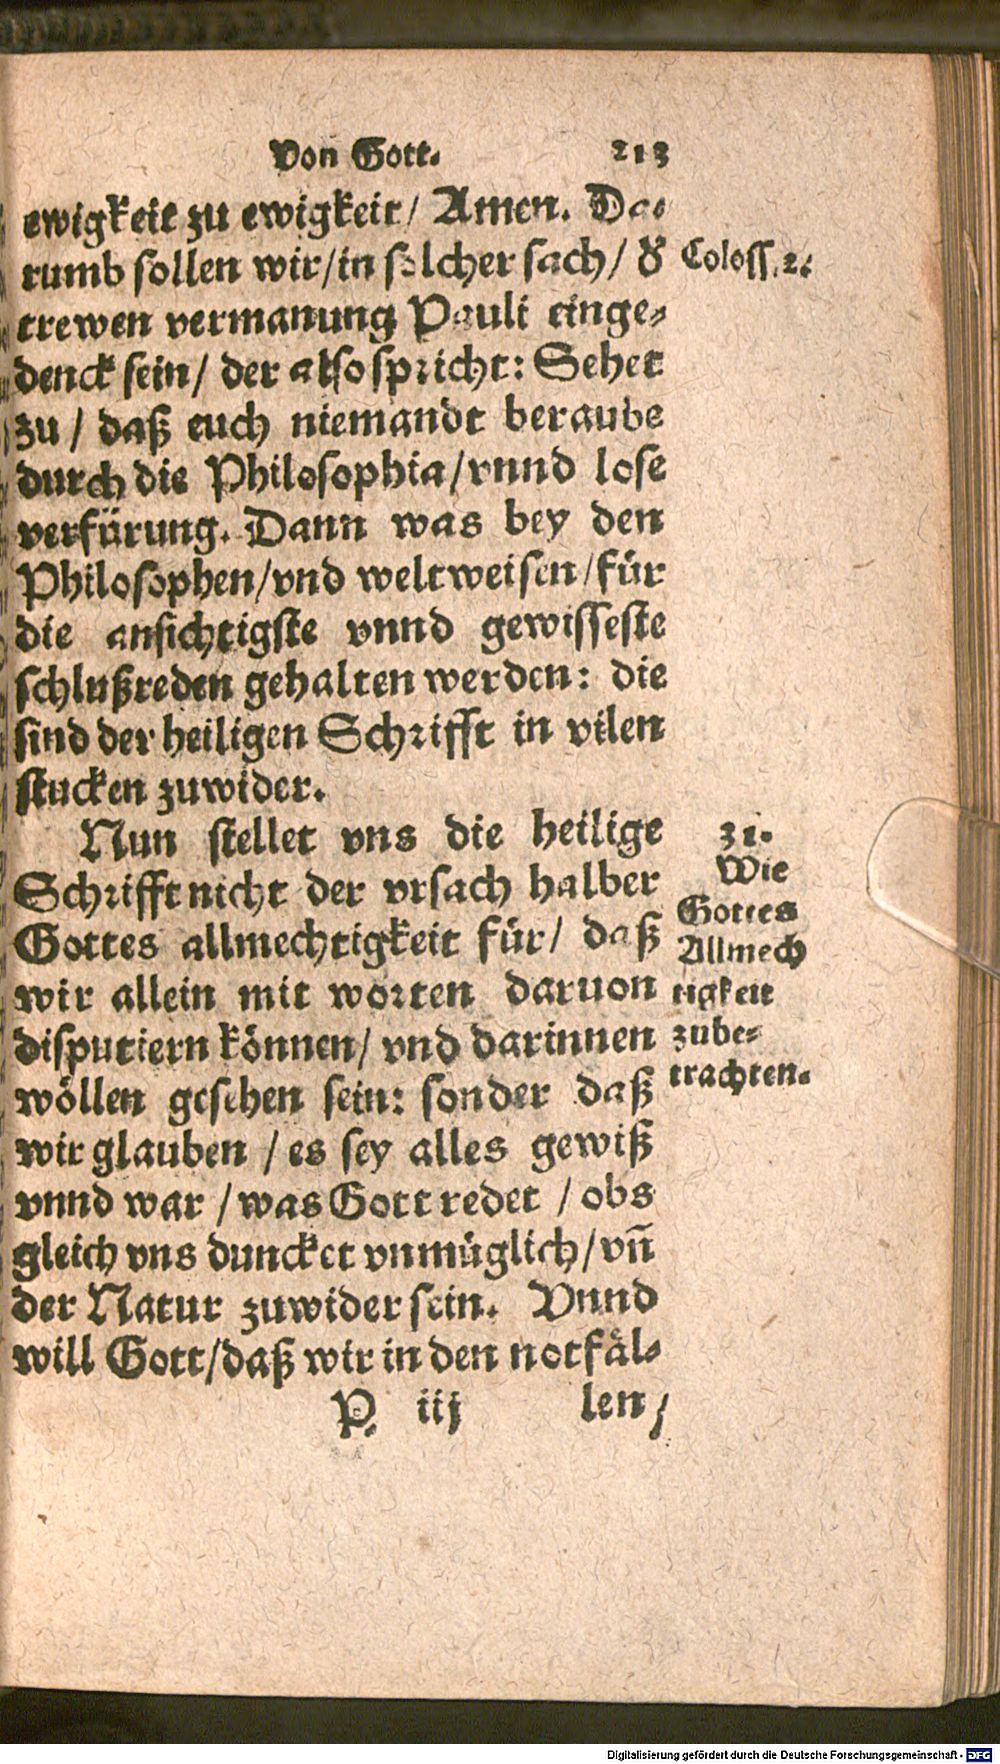 Von Gott. 213
ewigkeit zu ewigkeit/ Amen. Da-
rumb sollen wir/in solcher sach/ d'
trewen vermanung Pauli einge-
denck sein/ der also spricht: Sehet
zu / daß euch niemandt beraube
durch die Philosophia/vnnd lose
verfürung. Dann was bey den
Philosophen/vnd weltweisen/für
die ansichtigste vnnd gewisseste
schlußreden gehalten werden: die
sind der heiligen Schrifft in vilen
stucken zuwider.
Coloss. 2.
Nun stellet vns die heilige
Schrifft nicht der vrsach halber
Gottes allmechtigkeit für/ daß
wir allein mit worten daruon
disputiern können/ vnd darinnen
wöllen gesehen sein: sonder daß
wir glauben / es sey alles gewiß
vnnd war / was Gott redet / obs
gleich vns duncket vnmüglich/vñ
der Natur zuwider sein. Vnnd
will Gott/daß wir in den notfäl-
31.
Wie
Gottes
Allmech
tigkeit
zube-
trachten.
P iij len/
Digitalisierung gefördert durch die Deutsche Forschungsgemeinschaft - DFG